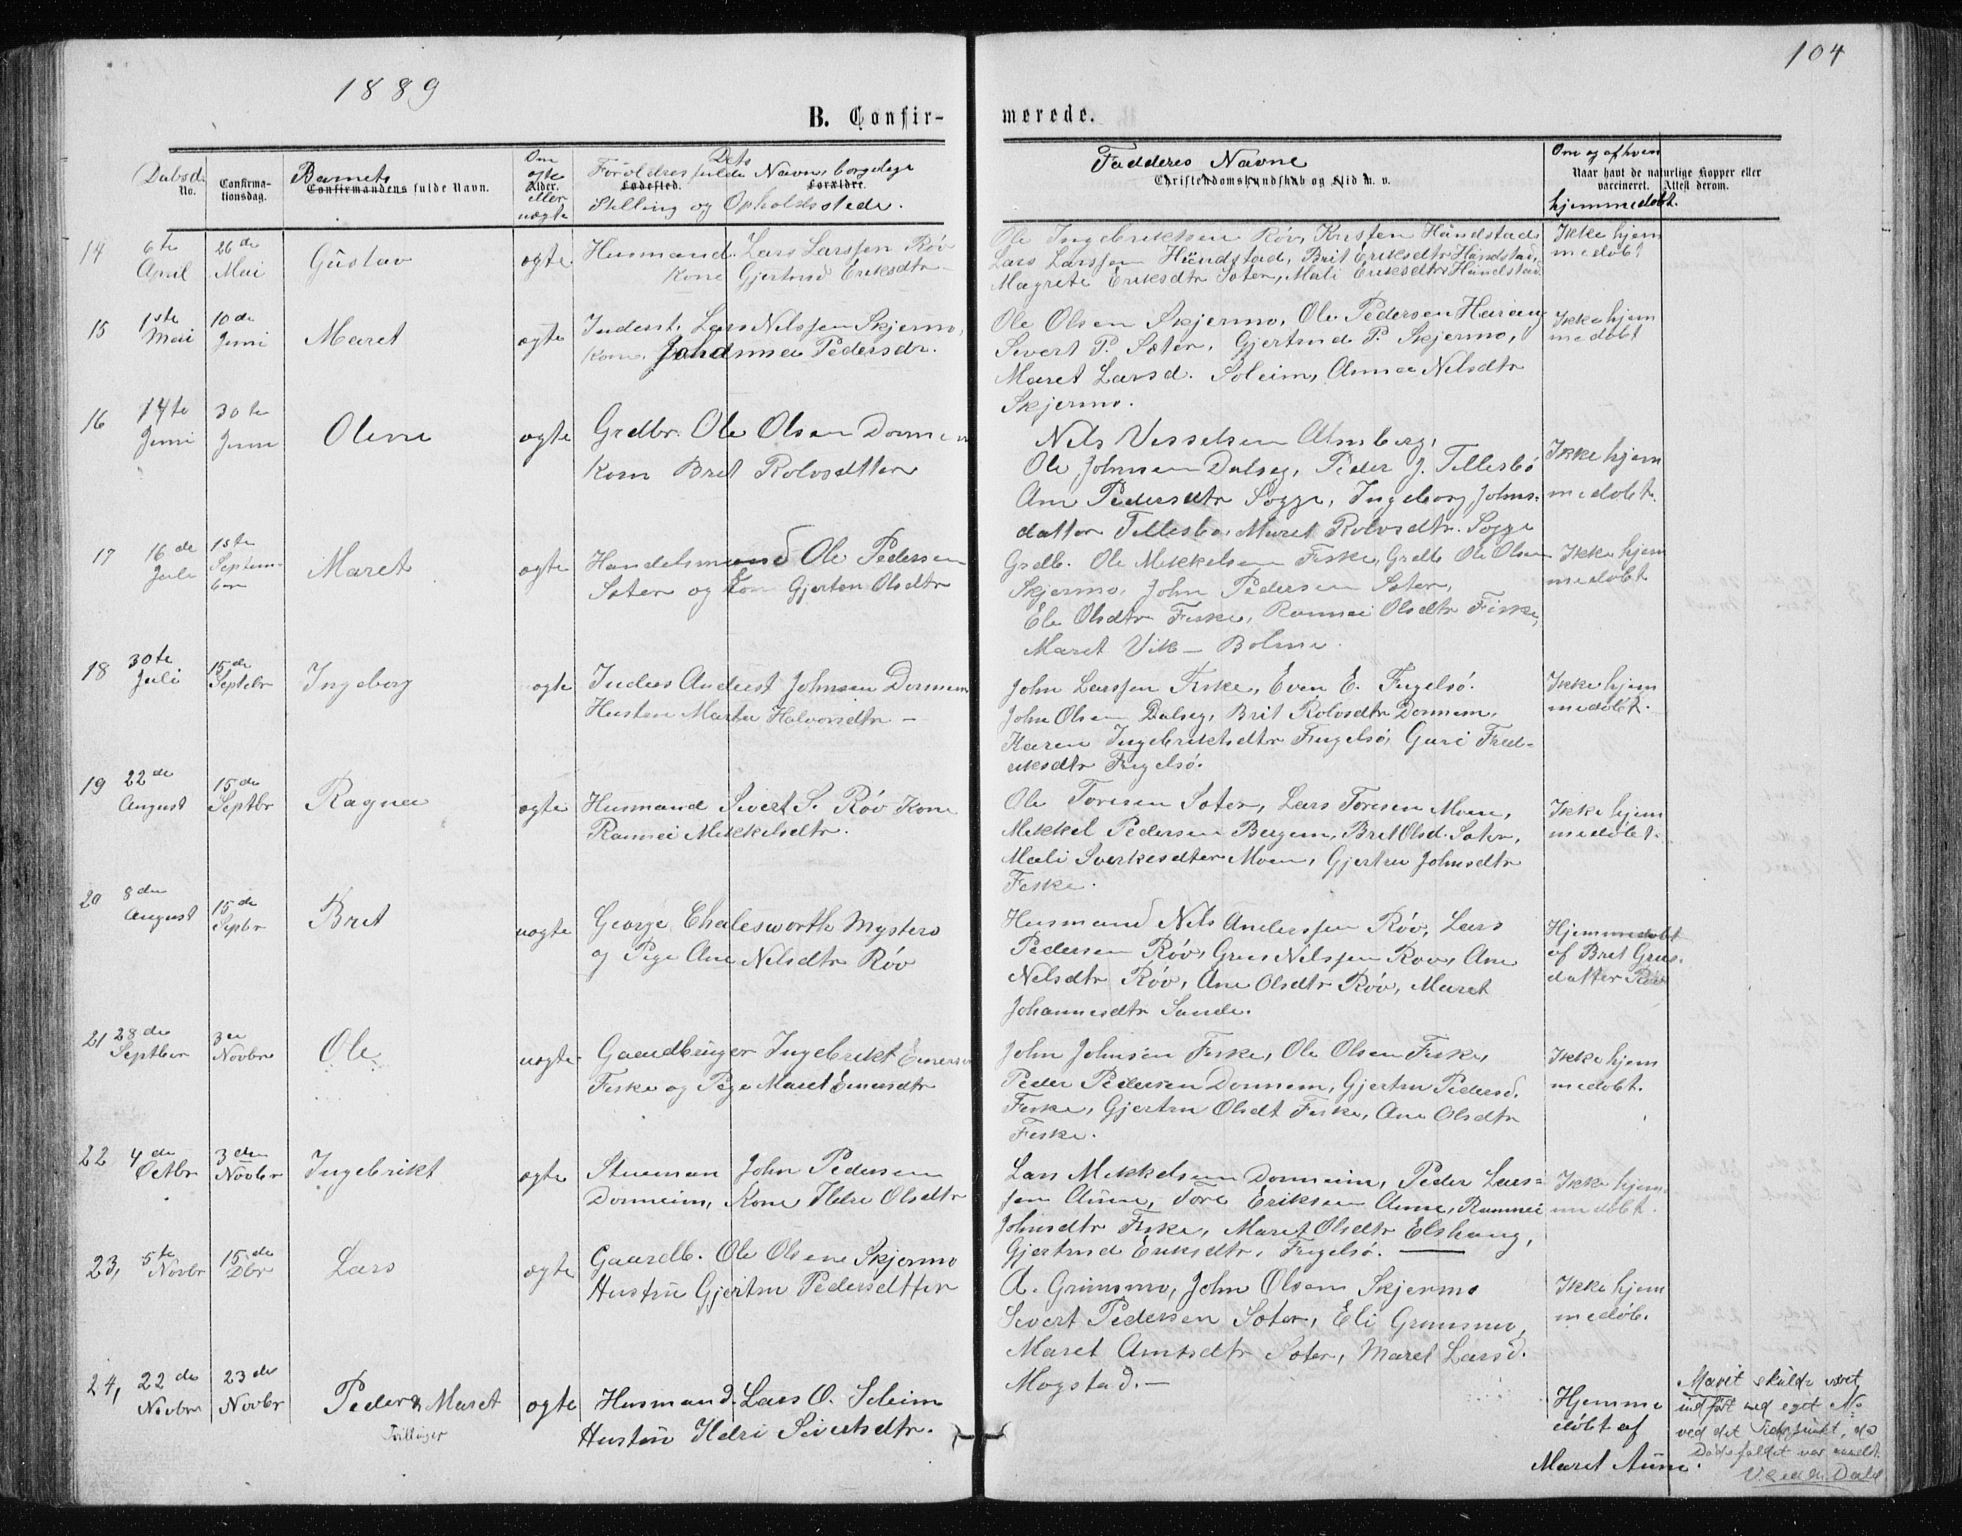 104
1889
B. Confir-
merede.
Daabsd.
No.
Confirma-
tionsdag.
Barnets
Confirmandens fulde Navn.
Om
ægte
Alder.
eller
uægte
Dets
Forældres fulde Navne, borgerlige
Fødested. Forældre.
Stilling og Opholdssteder.
Fadderes Navne
Christendomskundskab og Flid m. v.
Om og af hvem
Naar havt de naturlige Kopper eller
vaccineret. Attest derom.
hjemmedøbt.
14 6te April 26de Mai Gustav ægte
Husmand Lars Larssen Røv
Kone Gjertrud Eriksdtr
Ole Ingebriktsen Røv, Kristen Håndstad
Lars Larssen Håndstad, Brit Eriksdtr Håndstad,
Magrete Eriksdtr Sæter, Mali Eriksdtr Håndstad
Ikke hjem
medøbt
15 1ste Mai 10de Juni Maret ægte
Inderst. Lars Nilssen Skjermo,
Kone. Johanna Pedersdr.
Ole Olsen Skjermo, Ole Pedersen Harang
Sivert P. Sæter, Gjertrud P. Skjermo,
Maret Larsd. Soleim, Anne Nilsdtr
Skjermo.
Ikke hjem
medøbt
16 14te Juni 30te Juni Oline ægte
Grdbr. Ole Olsen Donnem
Kone Bret Rolvsdtter
Nils Vesselsen Almberg,
Ole Johnsen Dalseg, Peder J. Tellesbø
Ane Pedersdtr Sogge, Ingeborg Johns-
datter Tellesbø, Maret Rolvsdtr. Sogge
Ikke hjem
medøbt.
17 16de Juli 1ste Septem-
ber Maret ægte
Handelsmand Ole Pedersen
Sæter og Kone Gjertru Olsdtr
Grdb. Ole Mikkelsen Fiske, Grdb. Ole Olsen
Skjermo, John Pedersen Sæter,
Eli Olsdtr Fiske, Rannei Olsdtr Fiske,
Maret Vik — Bolme.
Ikke hjem
medøbt
18 30te Juli 15de Septebr Ingeborg ægte
Inders Anderst Johnsen Donnem
Hustru Marta Halvorsdtr —
John Larssen Fiske, Even E. Fugelsø.
John Olsen Dalseg, Brit Rolvsdtr Donnem,
Karen Ingebriktsdtr Fugelsø, Guri Fred-
riksdtr Fugelsø.
Ikke hjem
medøbt.
19 22de August 15de Septbr Ragna ægte
Husmand Sivert S. Røv Kone
Rannei Mikkelsdtr.
Ole Toresen Sæter, Lars Toresen Moen,
Mikkel Pedersen Bergem, Bret Olsd. Sæter,
Mali Sverkesdter Moen, Gjertru Johnsdtr
Fiske.
Ikke hjem
medøbt.
20 8de August 15de Sepbr Bret uægte
George Chalesworth Mysters
og Pige Ane Nilsdtr Røv
Husmand Nils Anderssen Røv, Lars
Pedersen Røv, Grus Nilssen Røv, Ane
Nilsdtr Røv, Ane Olsdtr Røv, Maret
Johannesdtr Sande.
Hjemmedøbt
af Bret Grus-
datter Røv
21 28de Septber 3die Novbr Ole uægte
Gaardbruger Ingebrikt Einersen
Fiske og Pige Maret Einersdtr
John Johnsen Fiske, Ole Olsen Fiske,
Peder Pedersen Donnem, Gjertru Pedersd.
Fiske, Gjertru Olsdt Fiske, Ane Olsdtr
Fiske.
Ikke hjem
medøbt.
22 4de Octbr 3den Novbr Ingebrikt ægte
Stueman John Pedersen
Donneim, Kone, Ildri Olsdtr
Lars Mikkelsen Donneim, Peder Lars-
sen Aune, Tore Eriksen Aune, Rannei
Johnsdtr Fiske, Maret Olsdtr Elshaug,
Gjertrud Eriksdtr, Fugelsø.
Ikke hjem-
medøbt.
23, 5te Novbr 15de Dbr Lars ægte
Gaardb. Ole Olsen Skjermo
Hustru Gjertru Pedersdtter
A. Grimsmo, John Olsen Skjermo
Sivert Pedersen Sæter, Eli Grimsmo,
Maret Arntsdtr Sæter, Maret Larsd.
Mogstad. —
Ikke hjem
medøbt.
24, 22de Novbr 23de Novbr Peder & Maret ægte
Tvillinger
Husmand. Lars O. Soleim
Hustru Ildri Sivertsdtr.
Hjemme
døbt af
Maret Aune.
Marit skulde været
indført med eget No
ved det Tidspunkt, da
Dødsfaldet var anmeldt.